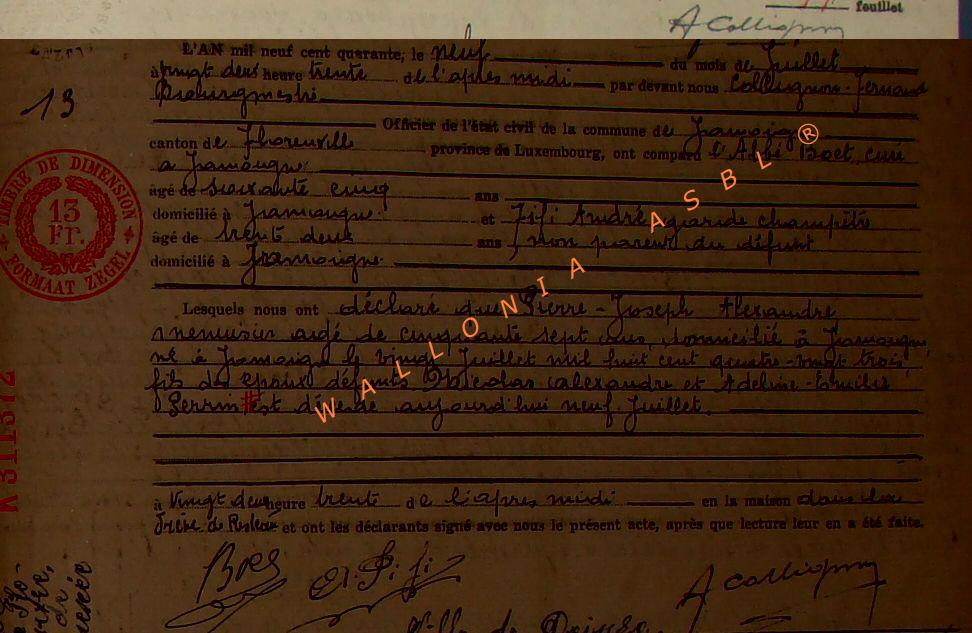 feuillet
A Collignon
L'AN mil neuf cent quarante, le neuf du mois de Juillet
à vingt deux heure trente de l'après midi par devant nous Collignon-Fernand
Bourgmestre
13
Officier de l'état civil de la commune de Jamoigne
canton de Florenville province de Luxembourg, ont comparu l'Abbé Boet, curé
a Jamoigne
âgé de soixante cinq ans
domicilié à Jamoigne et Fifi André garde champêtre
âgé de trente deux ans, non parent du défunt
domicilié à Jamoigne
TIMBRE DE DIMENSION
13
FR.
FORMAAT ZEGEL
WALLONIA ASBL ®
Lesquels nous ont déclaré que Pierre-Joseph Alexandre
menuisier agé de cinquante sept ans, domicilié à Jamoigne,
né à Jamoigne le vingt Juillet mil huit cent quatre-vingt trois
fils des epoux défunts Nicolas alexandre et Adeline-Emilie
Perrin # est décédé aujourd'hui neuf Juillet.
311372
à Vingt deux heure trente de l'apres midi en la maison dans la
et ont les déclarants signé avec nous le présent acte, après que lecture leur en a été faite.
A. Fifi
A Collignon